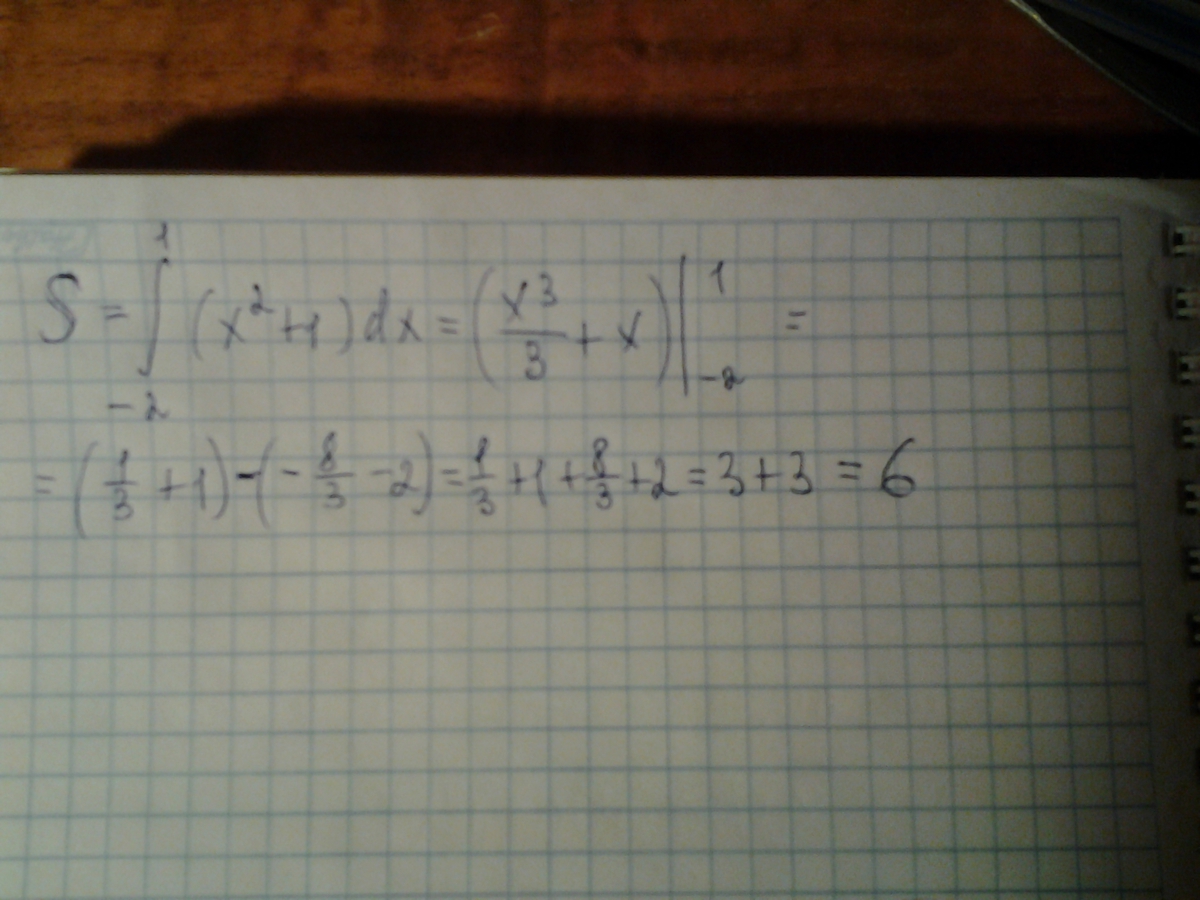 S = ∫_{-2}^{1} (x² + 1) dx = (x³/3 + x) |_{-2}^{1} =
= (1/3 + 1) - (- 8/3 - 2) = 1/3 + 1 + 8/3 + 2 = 3 + 3 = 6